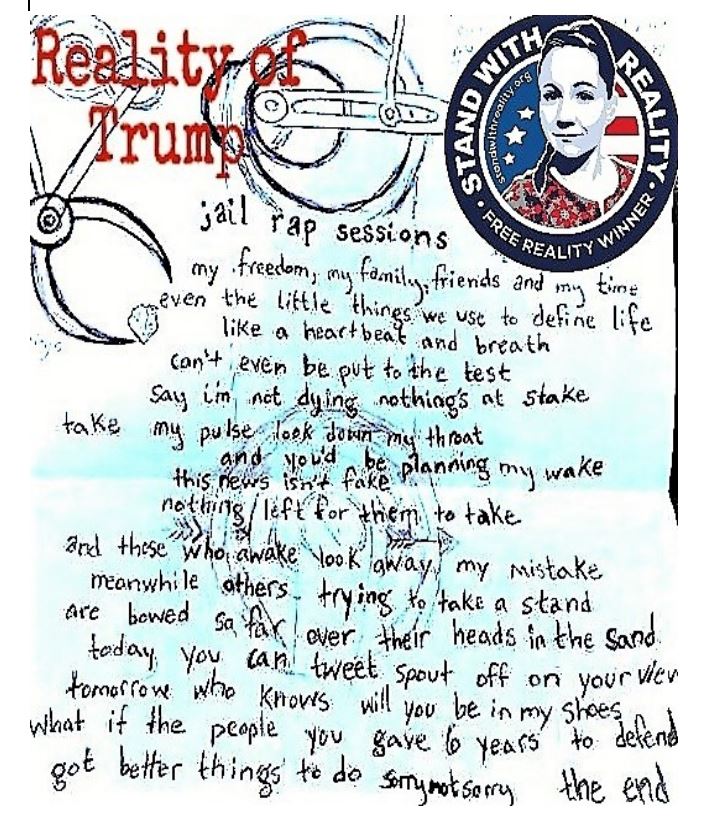 Reality of
Trump
STAND WITH REALITY
standwithreality.org
• FREE REALITY WINNER •
jail rap sessions
my freedom, my family, friends and my time
even the little things we use to define life
like a heartbeat and breath
can't even be put to the test
say i'm not dying nothing's at stake
take my pulse look down my throat
and you'd be planning my wake
this news isn't fake
nothing left for them to take
and those who awake look away my mistake
meanwhile others trying to take a stand
are bowed so far over their heads in the sand
today you can tweet spout off on your view
tomorrow who knows will you be in my shoes
what if the people you gave 6 years to defend
got better things to do sorrynotsorry the end